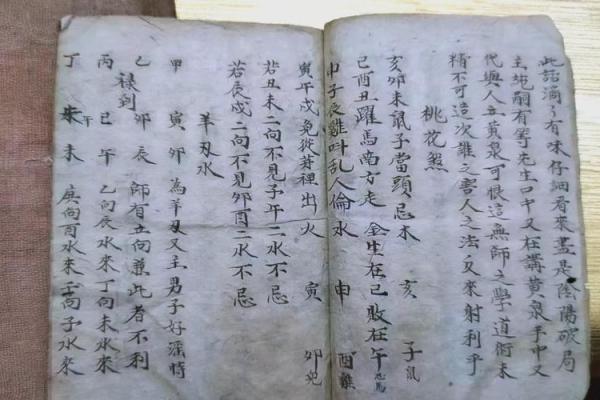 此話滴〻有味仔細看來盡是陰陽破局
主 有等先生口中又在講黃泉手中又
代與人立黃泉可恨這無師之學道術未
精不可這次誰之害人之法反來射利乎
桃花煞
亥卯未鼠子當頭忌 木 亥 子鼠
巳酉丑躍馬南方走 金生在巳敗在午 馬
申子辰雞叫乱人倫 水 申 酉雞
寅午戌兔從茅裡出 火 寅 卯兔
若丑未二向不見子午二水不忌
若辰戌二向不見卯酉二水不忌
羊刃水
甲 寅 卯 為羊刃又主男子好 恃
祿到
乙 卯 辰 師有立向兼此者不利
丙 巳 午 乙向辰水來丁向未水來
丁 午 未 庚向酉水來 向子水來